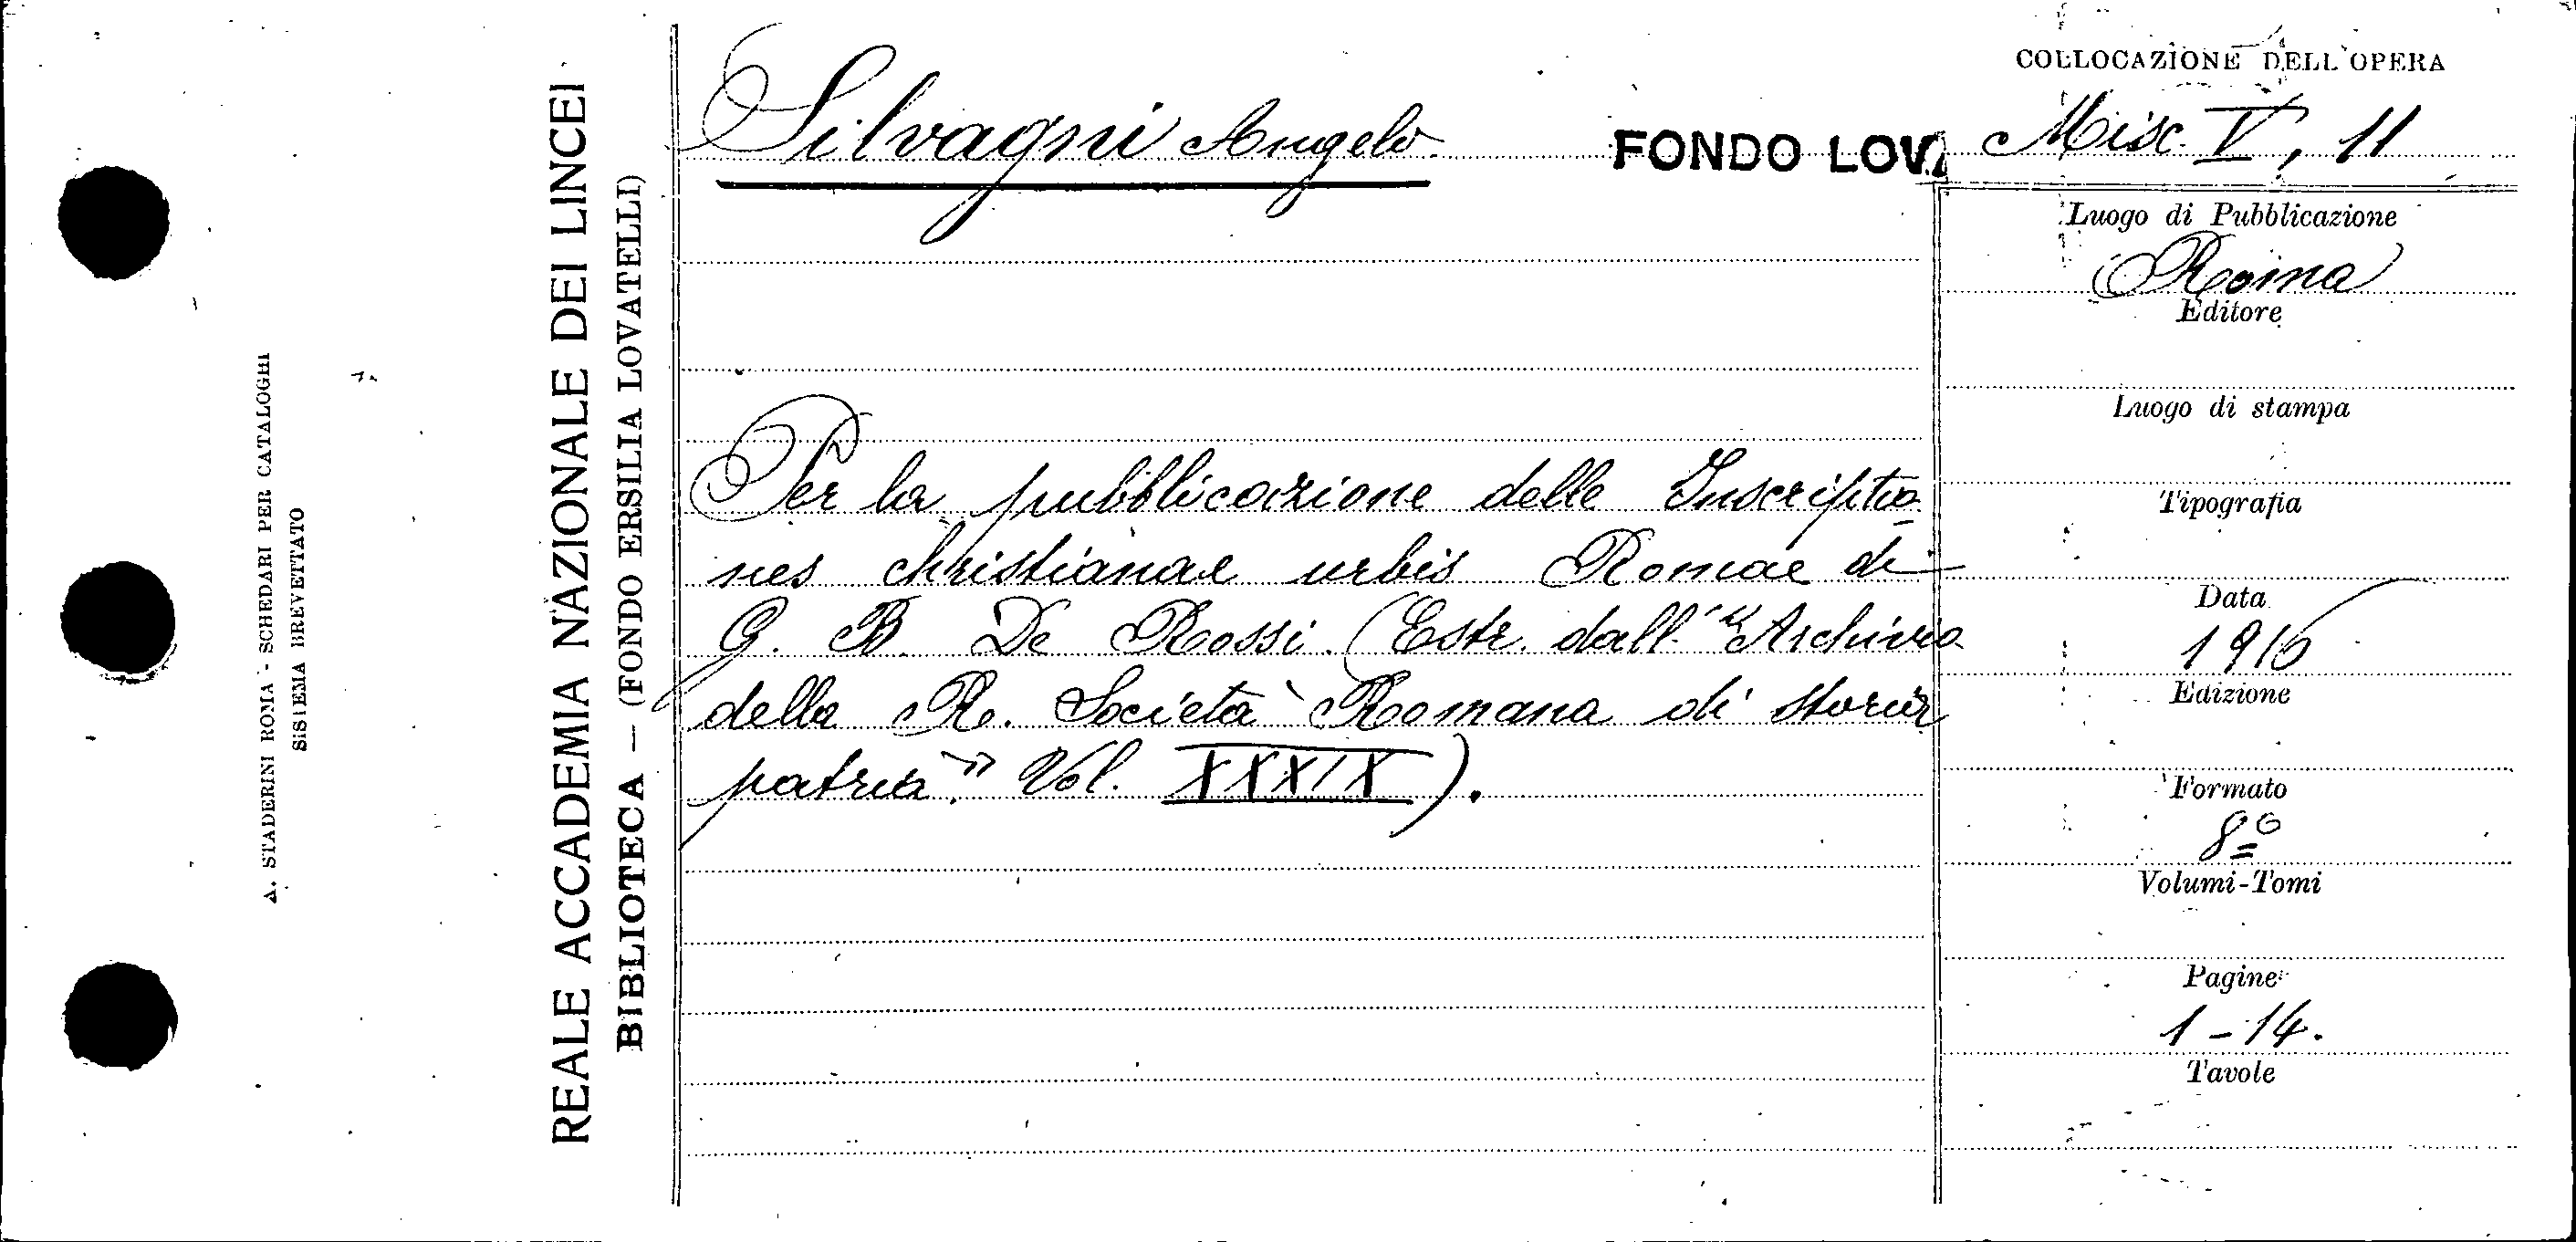 A. STADERINI ROMA - SCHEDARI PER CATALOGHI
SISTEMA BREVETTATO
REALE ACCADEMIA NAZIONALE DEI LINCEI
BIBLIOTECA — (FONDO ERSILIA LOVATELLI)
Silvagni Angelo
FONDO LOV
COLLOCAZIONE DELL'OPERA
Misc. V, 11
Per la pubblicazione delle Inscriptio
nes christianae urbis Romae di
G. B. De Rossi. (Estr. dall' "Archivio
della R. Società Romana di storia
patria." Vol. XXXIX).
Luogo di Pubblicazione
Roma
Editore
Luogo di stampa
Tipografia
Data
1916
Edizione
Formato
8º
Volumi-Tomi
Pagine
1-14.
Tavole